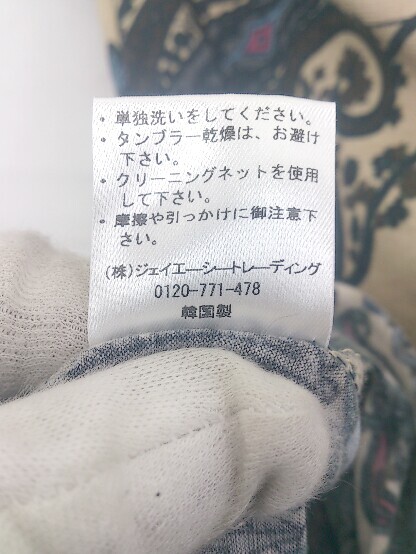 ・単独洗いをしてください。
・タンブラー乾燥は、お避け
下さい。
・クリーニングネットを使用
して下さい。
・摩擦や引っかけに御注意下
さい。
(株)ジェイエーシートレーディング
0120-771-478
韓国製